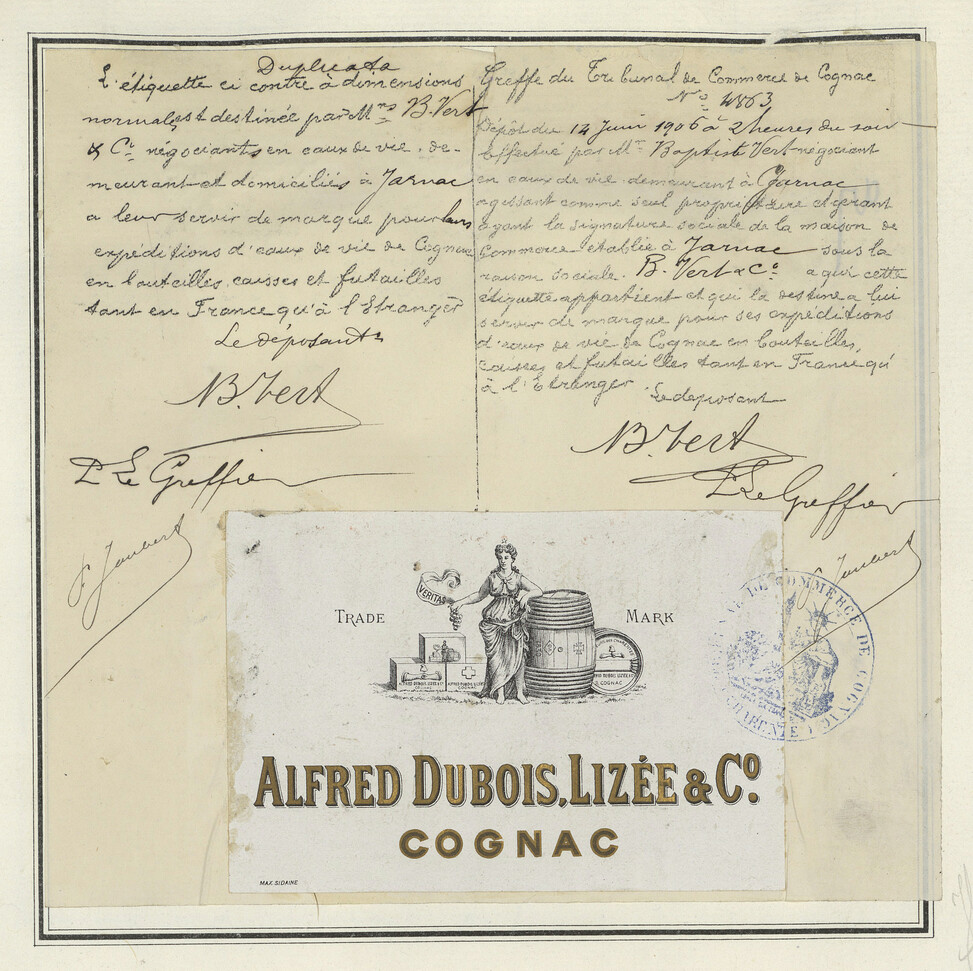 Duplicata
L'étiquette ci contre à dimensions
normales est destinée par Mrs B. Vert
& Cie négociants en eaux de vie, de-
meurant et domiciliés à Jarnac
a leur servir de marque pour leurs
expéditions d'eaux de vie de Cognac
en bouteilles, caisses et futailles
tant en France qu'à l'Etranger
Le déposant
B. Vert
P. Le Greffier
F. Jaubert
Greffe du Tribunal de Commerce de Cognac
No 4863
Dépôt du 14 Juin 1906 à 2 heures du soir
Effectué par Mr Baptiste Vert négociant
en eaux de vie demeurant à Jarnac
agissant comme seul propriétaire et gérant
ayant la signature sociale de la maison de
Commerce établie à Jarnac sous la
raison sociale B. Vert & Co a qui cette
étiquette appartient et qui la destine a lui
servir de marque pour ses expéditions
d'eaux de vie de Cognac en bouteilles,
caisses et futailles tant en France qu'
à l'Etranger
Le deposant
B. Vert
P. Le Greffier
F. Jaubert
TRADE MARK
VERITAS
ALFRED DUBOIS LIZÉE & Co
COGNAC
ALFRED DUBOIS LIZÉE
COGNAC
ALFRED DUBOIS LIZÉE & Co
COGNAC
ALFRED DUBOIS, LIZÉE & Co.
COGNAC
MAX. SIDAINE
DE COMMERCE DE COGNAC
CHARENTE